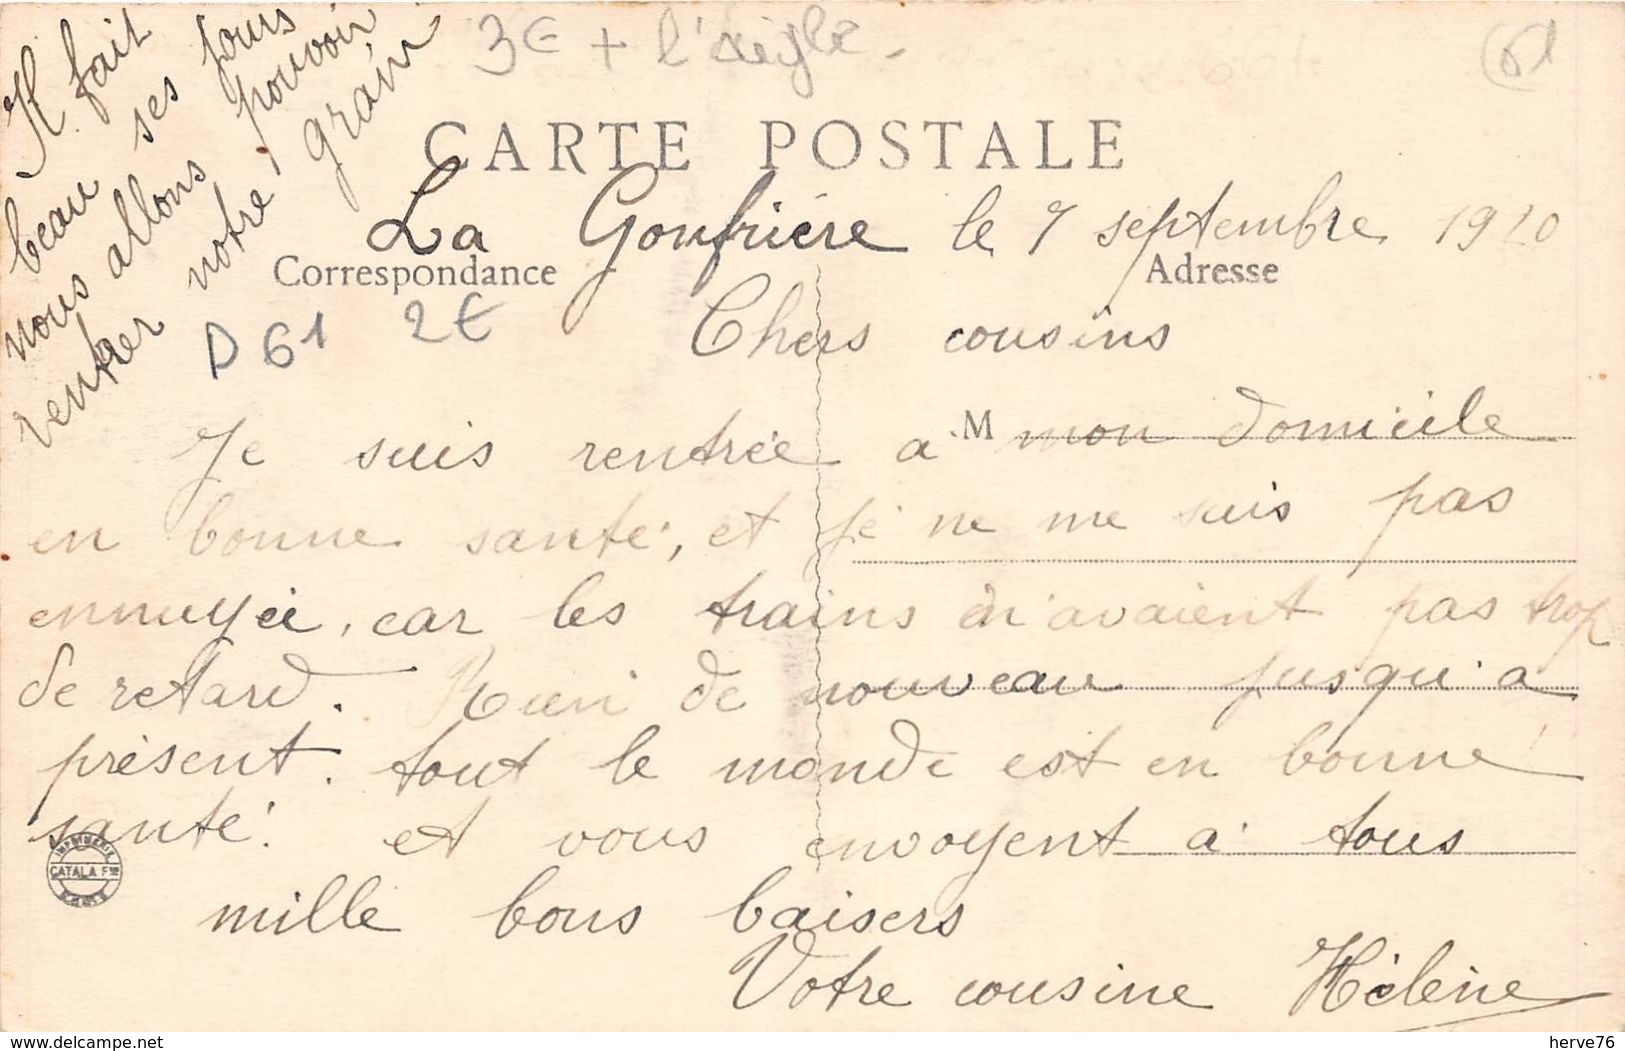 3€ + l'aigle.
61
CARTE POSTALE
La Gonfrière le 7 septembre 1920
Correspondance
Adresse
D 61 2€
Chers cousins
Je suis rentrée a M mon domicile
en bonne santé, et je ne me suis pas
ennuyée, car les trains n'avaient pas trop
de retard. Rien de nouveau jusqu'a
présent. tout le monde est en bonne
santé. et vous envoyent a tous
mille bons baisers
Votre cousine Hélène
Il fait
beau ses jours
nous allons pouvoir
rentrer notre grain
IMPRIMERIE
CATALA FRES
PARIS
www.delcampe.net
herve76